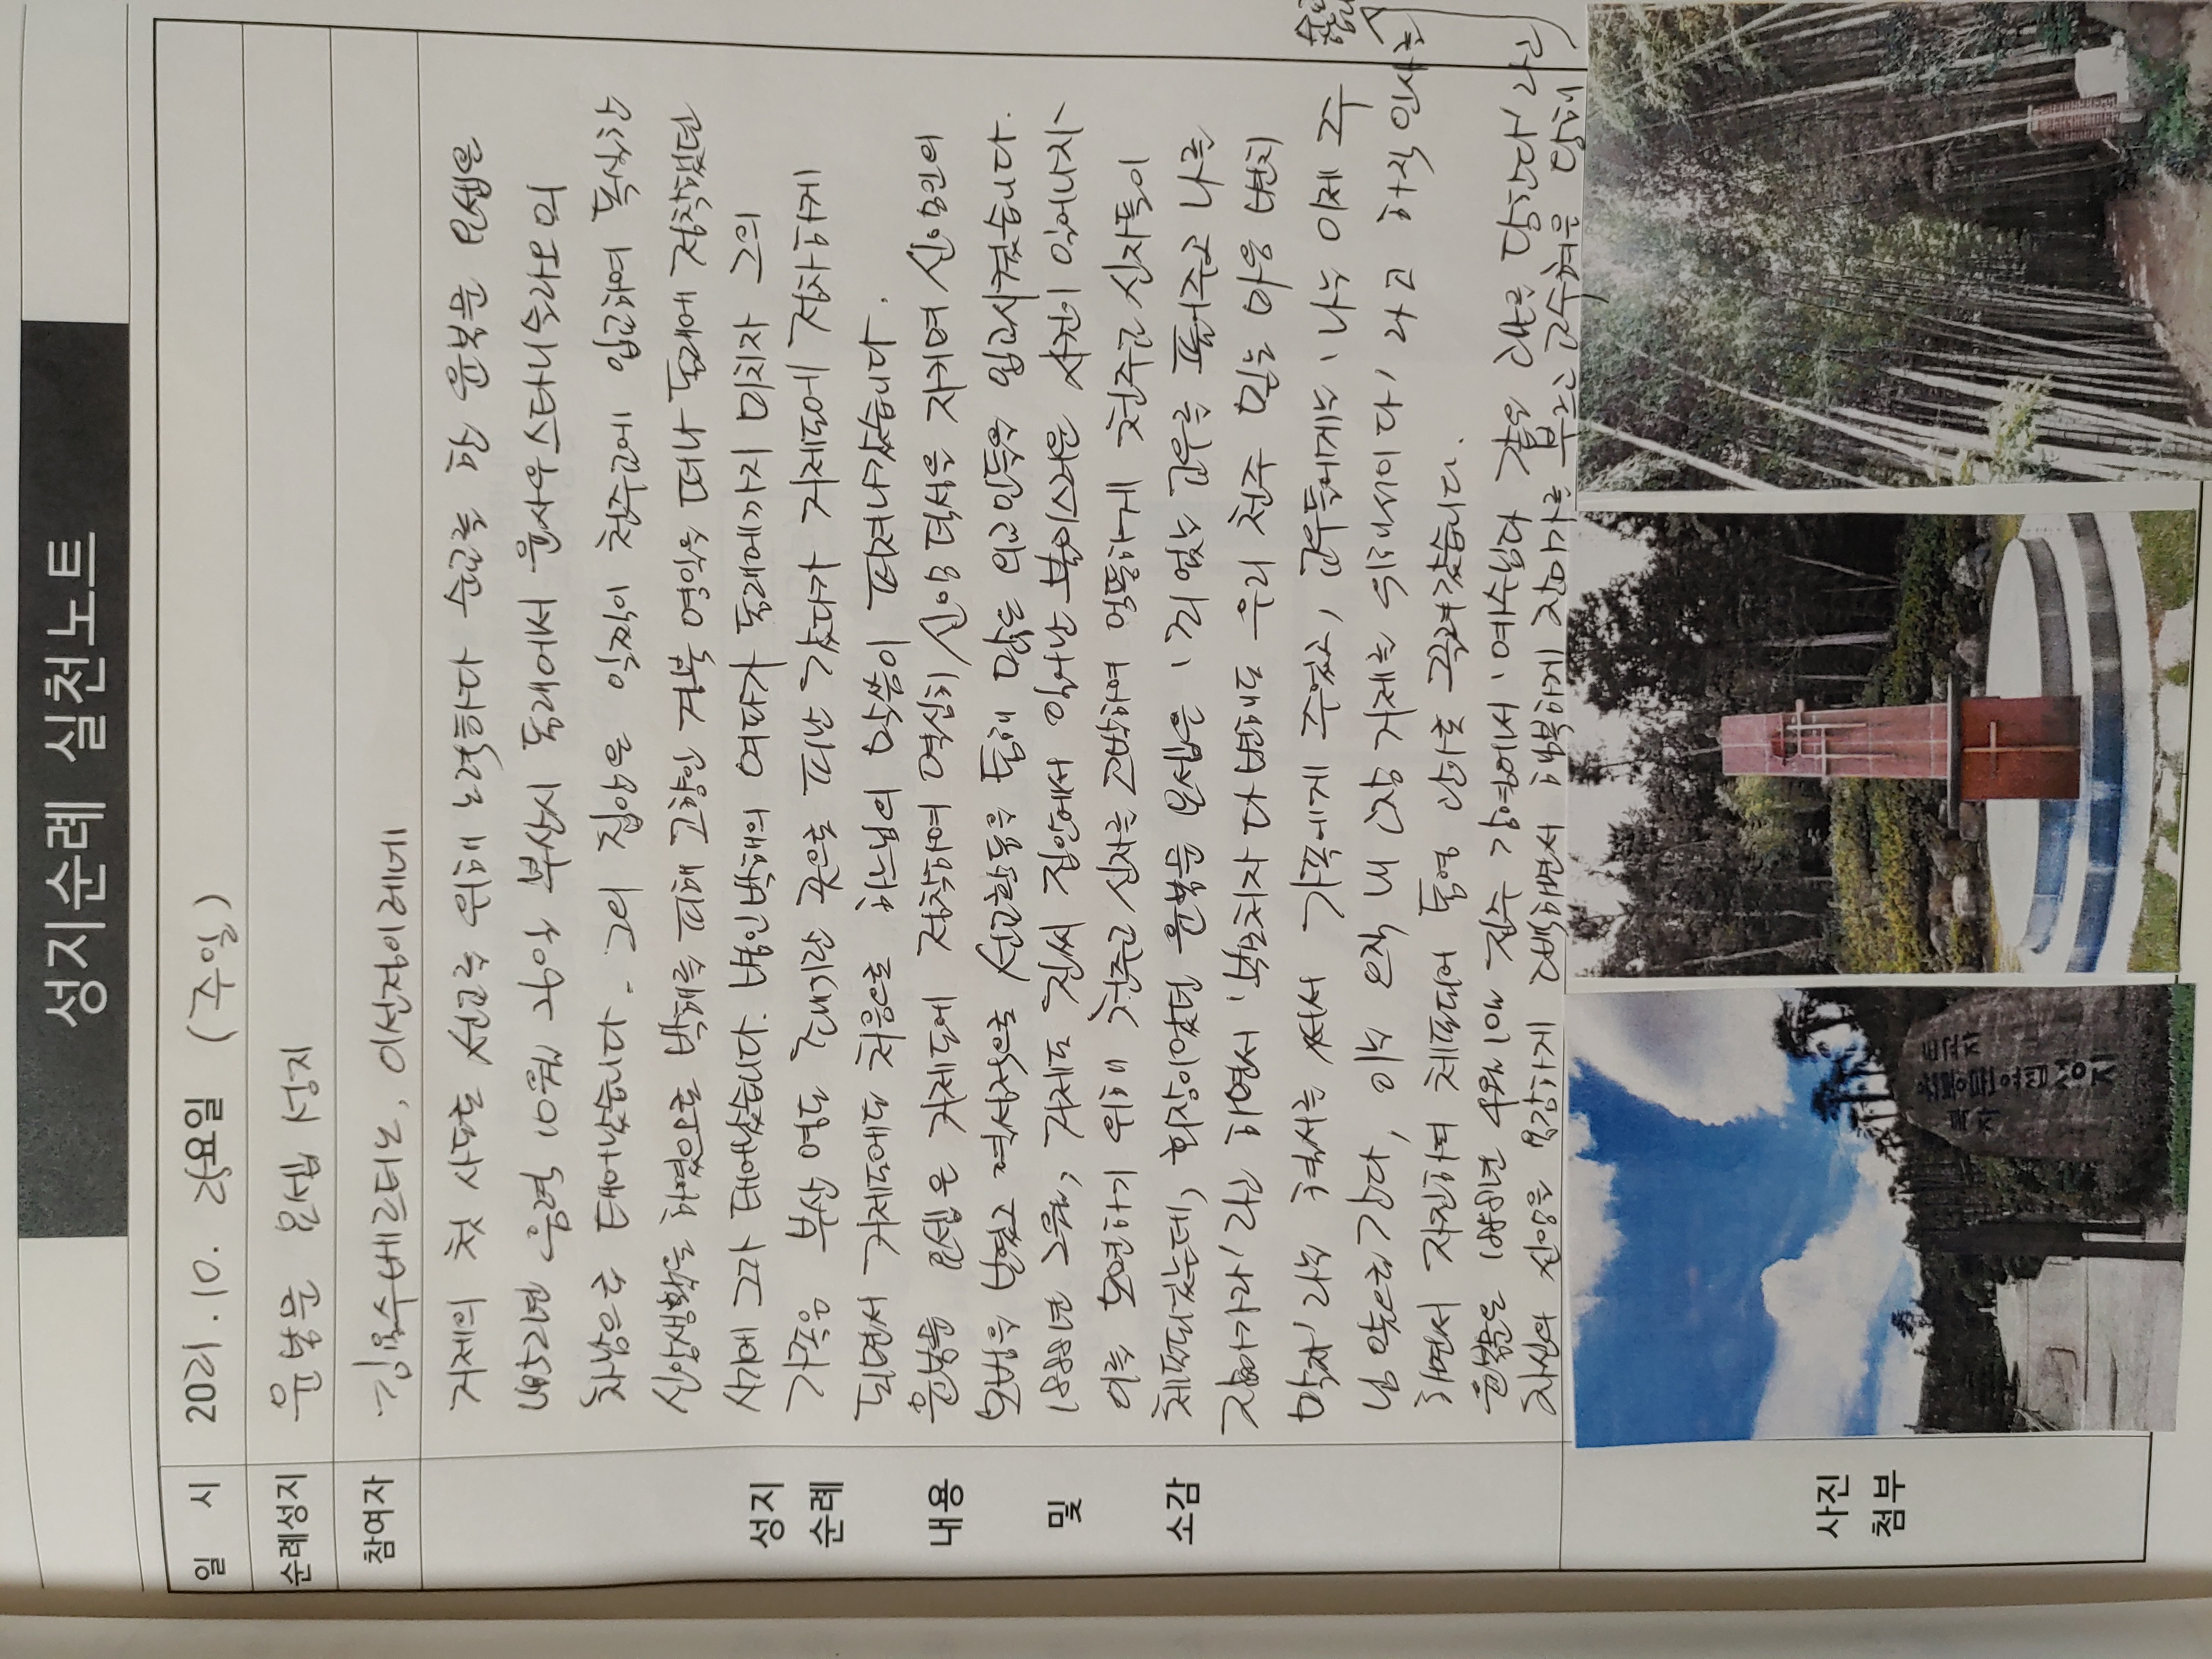 성지순례 실천노트
일 시 2021. 10. 25요일 (주일)
순례성지 윤봉문 요셉 성지
참여자 김용수베르티노, 이선정이레네
성지 순례 내용 및 소감
거제의 첫 사도로 선교를 위해 노력하다 순교를 한 윤봉문 요셉은
1852년 음력 10월 26일 부산시 동래에서 윤사우스타니슬라오의
차남으로 태어났습니다. 그의 집안은 일찍이 천주교에 입교하여 독실한
신앙생활을 하였으므로 박해를 피해 고향인 경북 영일을 떠나 동래에 정착했던
시기에 그가 태어났습니다. 병인박해의 여파가 동래에까지 미치자 그의
가족은 부산 영도 조내기란 곳으로 피난 갔다가 거제도에 정착하게
되면서 거제도에도 처음으로 하느님의 말씀이 퍼져나갔습니다.
윤봉문 요셉은 거제도에 정착하여 열심히 신앙 덕성을 지키며 신앙인의
모범을 보였고 열성적으로 선교활동을 통해 많은 외교인들을 입교시켰습니다.
1888년 2월, 거제도 진씨 집안에서 일어난 불미스러운 사건이 일어나자
이를 모면하기 위해 천주교 신자를 고발하여 엉뚱하게 천주교 신자들이
체포되었는데, 회장이었던 윤봉문 요셉은 '죄 없는 교우를 풀어주고 나를
잡아가라' 라고 하면서 '부모처자 다 변해도 우리 천주 믿는 마음 변치
말자' 라는 혈서를 써서 가족에게 주었고, 교우들에게는 '나는 이제 주
님 앞으로 간다, 이는 오직 내 고장 거제를 위해서이다' 라고 하직 인사를
하면서 자진하여 체포되어 통영 관아로 끌려갔습니다.
윤봉문은 1888년 4월 1일 진주 감영에서 '예수님과 같은 날을 당한다' 라고
자신의 신앙을 용감하게 고백하면서 행복하게 찬미가를 부르고 교수형을 당해
순교
사진 첨부
순교자
윤봉문요셉성지